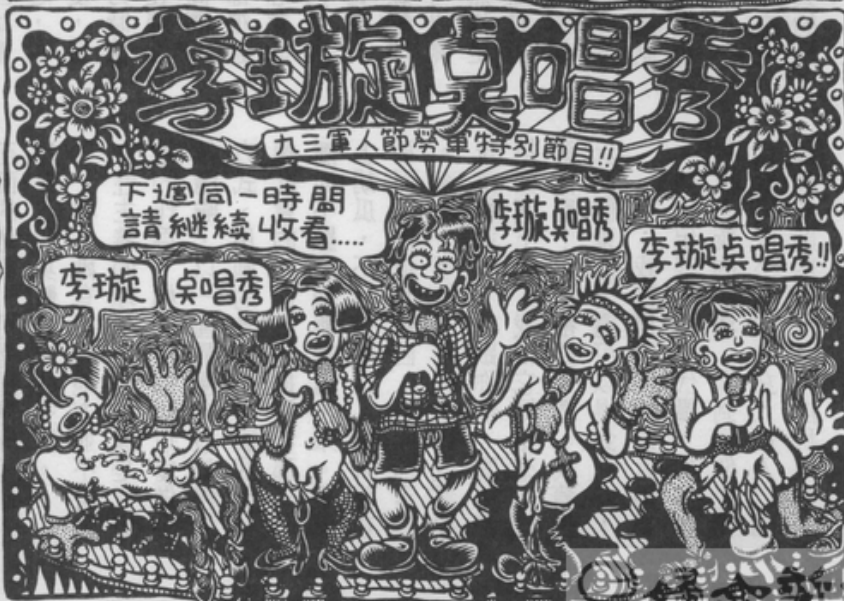 李璇貞唱秀
九三軍人節勞軍特別節目!!
下週同一時間
請繼續收看.....
李璇貞唱秀
李璇貞唱秀!!
李璇
貞唱秀